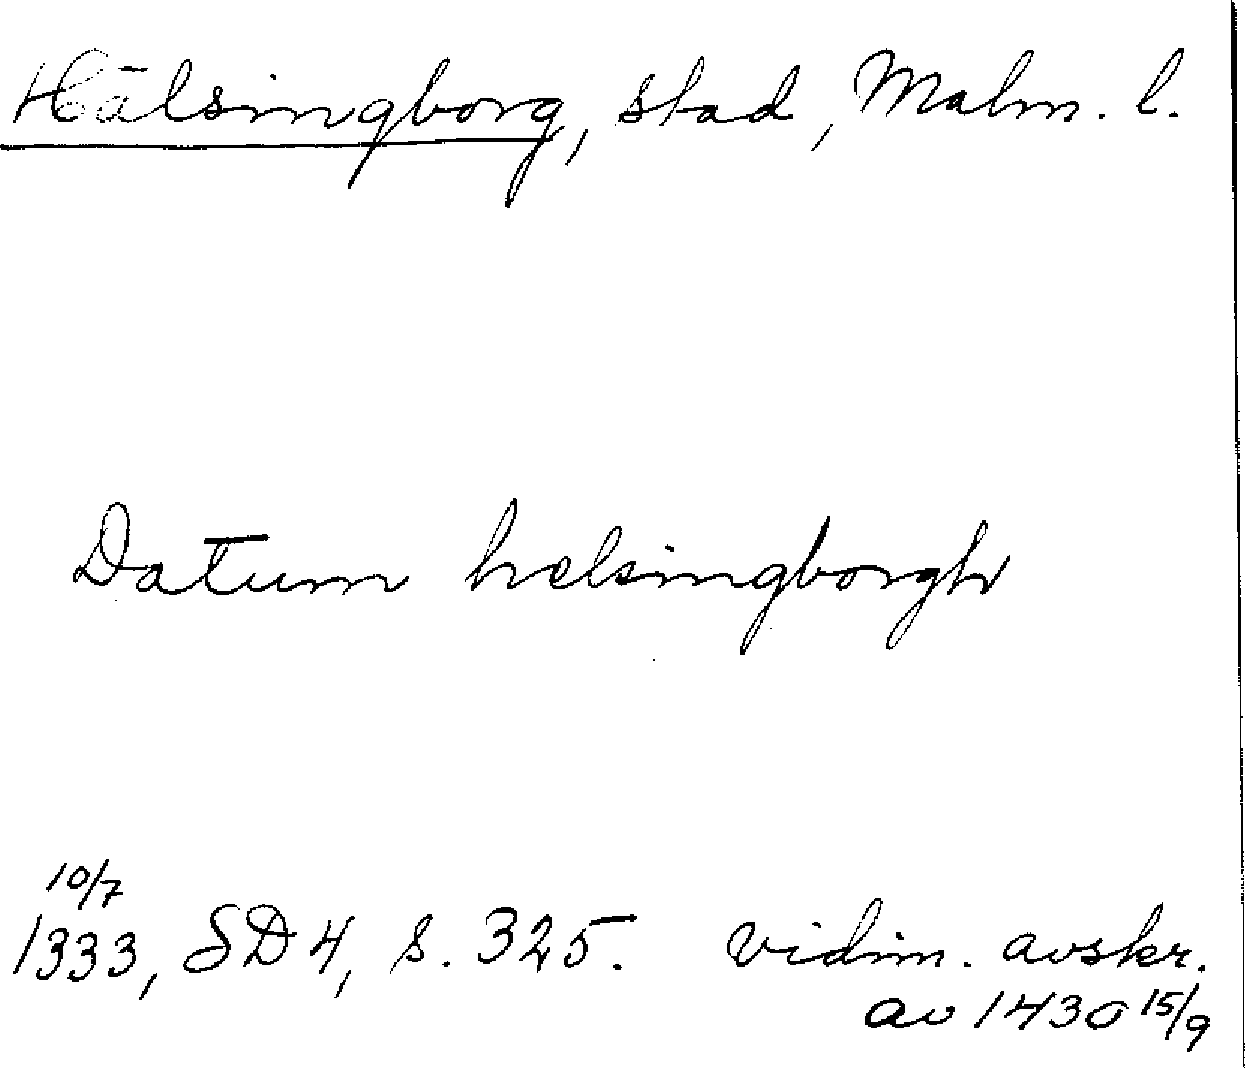 Hälsingborg, stad, Malm. l.
Datum helsingborgh
10/7
1333, SD 4, s. 325. vidim. avskr.
av 1430 15/9